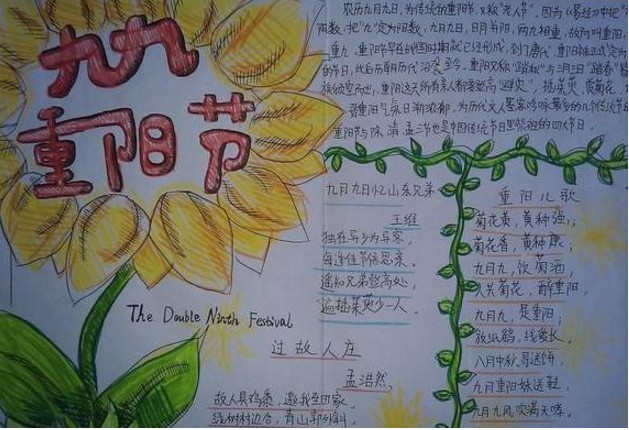 九九
重阳节
农历九月九日，为传统的重阳节，又称"老人节"。因为《易经》中把"
阳数，把"九"定为阳数，九月九日，日月并阳，两九相重，故而叫重阳，
重九，重阳节早在战国时期就已经形成，到了唐代，重阳被正式定为
的节日，此后历朝历代沿袭至今。重阳又称"踏秋"与三月三日"踏春"皆
族倾室而出，重阳这天所有亲人都要登高"避灾"，插茱萸、赏菊花。
重阳与除、清、盂三节也是中国传统节日里祭祖的四大节日。
九月九日忆山东兄弟
王维
独在异乡为异客，
每逢佳节倍思亲。
遥知兄弟登高处，
遍插茱萸少一人。
The Double Ninth Festival
过故人庄
孟浩然
故人具鸡黍，邀我至田家。
绿树村边合，青山郭外斜。
重阳儿歌
菊花黄，黄种强；
菊花香，黄种康；
九月九，饮菊酒，
人共菊花，醉重阳。
九月九，是重阳；
放纸鹞，线爱长。
八月中秋哥送饼，
九月重阳妹送鞋，
九月九风吹满天哮。